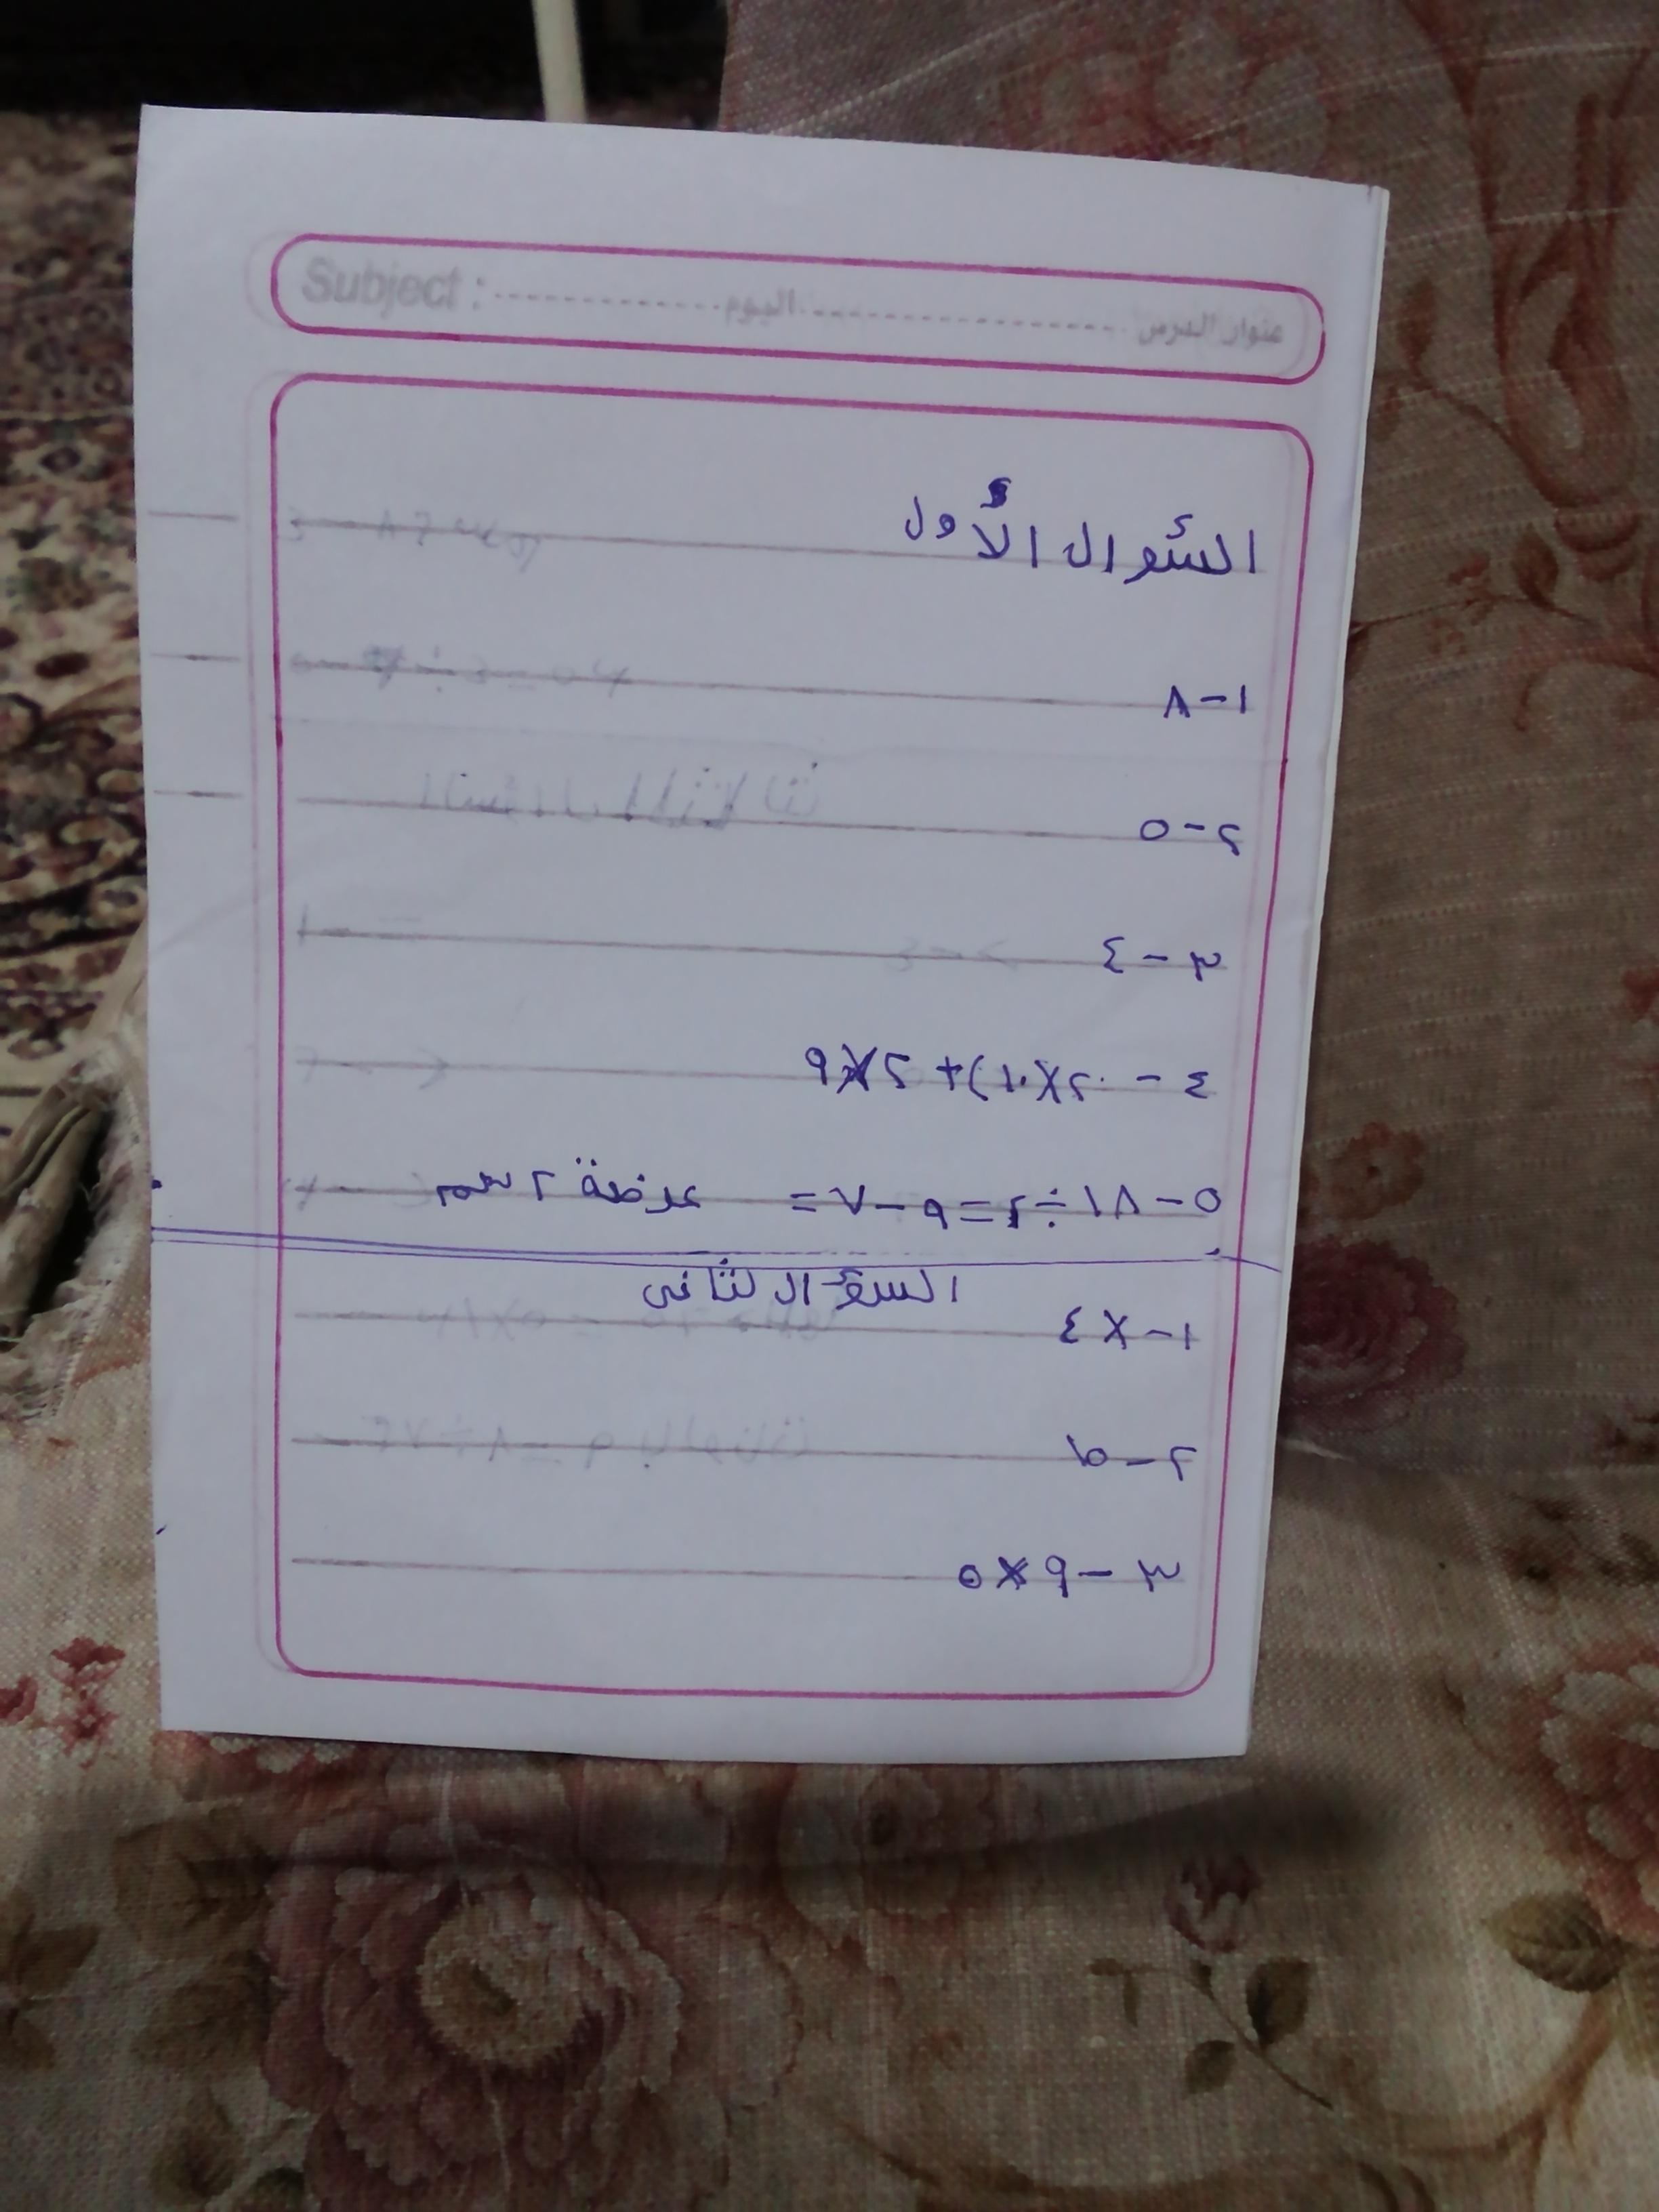 Subject : اليوم عنوان الدرس
السؤال الأول
١-٨
٢-٥
٣-٤
٤- ٢×(١٠)+٢×٩
٥-١٨÷٢=٩-٧= عرضة ٢ سم
السؤال لثاني
١-×٤
٢-٥
٣-٩×٥